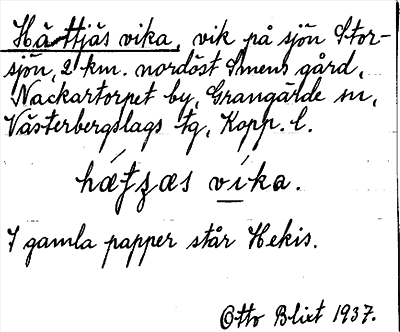 Hättjäs vika, vik på sjön Stor-
sjön, 2 km. nordöst Smens gård,
Nackartorpet by, Grangärde sn,
Västerbergslags tg, Kopp. l.
hǽtʒæs víka.
I gamla papper står Hekis.
Otto Blixt 1937.